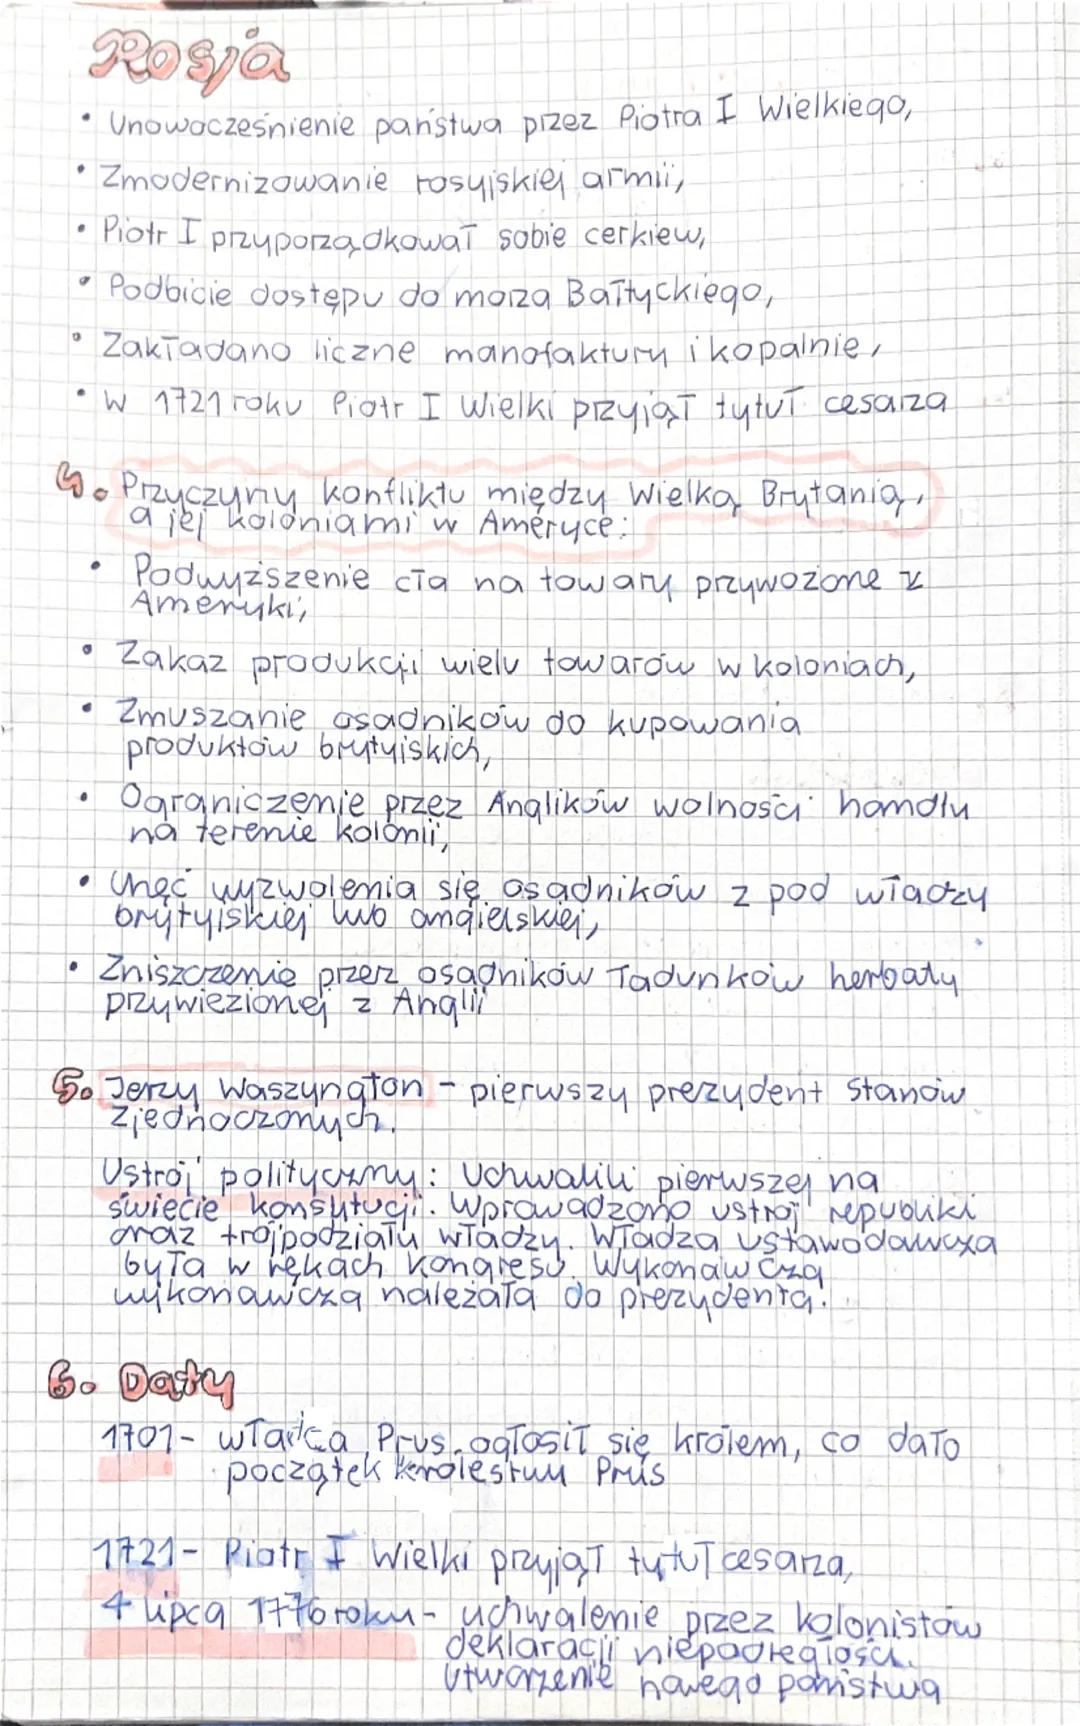 Rosja
• Unowocześnienie państwa przez Piotra I Wielkiego,
• Zmodernizowanie rosyjskiej armii,
• Piotr I przyporządkował sobie cerkiew,
• Podbicie dostępu do morza Bałtyckiego,
• Zakładano liczne manofaktury i kopalnie,
• W 1721 roku Piotr I Wielki przyjął tytuł cesarza
4. Przyczyny konfliktu między Wielką Brytanią,
a jej koloniami w Ameryce:
• Podwyższenie cła na towary przywożone z
Ameryki,
• Zakaz produkcji wielu towarów w koloniach,
• Zmuszanie osadników do kupowania
produktów brytyjskich,
• Ograniczenie przez Anglików wolności handlu
na terenie kolonii,
• Chęć wyzwolenia się osadników z pod władzy
brytyjskiej lub angielskiej,
• Zniszczenie przez osadników ładunków herbaty
przywiezionej z Anglii
5. Jerzy Waszyngton - pierwszy prezydent Stanów
Zjednoczonych.
Ustrój polityczny: Uchwalili pierwszej na
świecie konsytucji. Wprowadzono ustrój republiki
oraz trójpodziału władzy. Władza ustawodawcza
była w rękach Kongresu. Wykonawcza
wykonawcza należała do prezydenta.
6. Daty
1701 - władca Prus ogłosił się królem, co dało
początek królestwu Prus
1721 - Piotr I Wielki przyjął tytuł cesarza,
4 lipca 1776 roku - uchwalenie przez kolonistów
deklaracji niepodległości.
Utworzenie nowego państwa